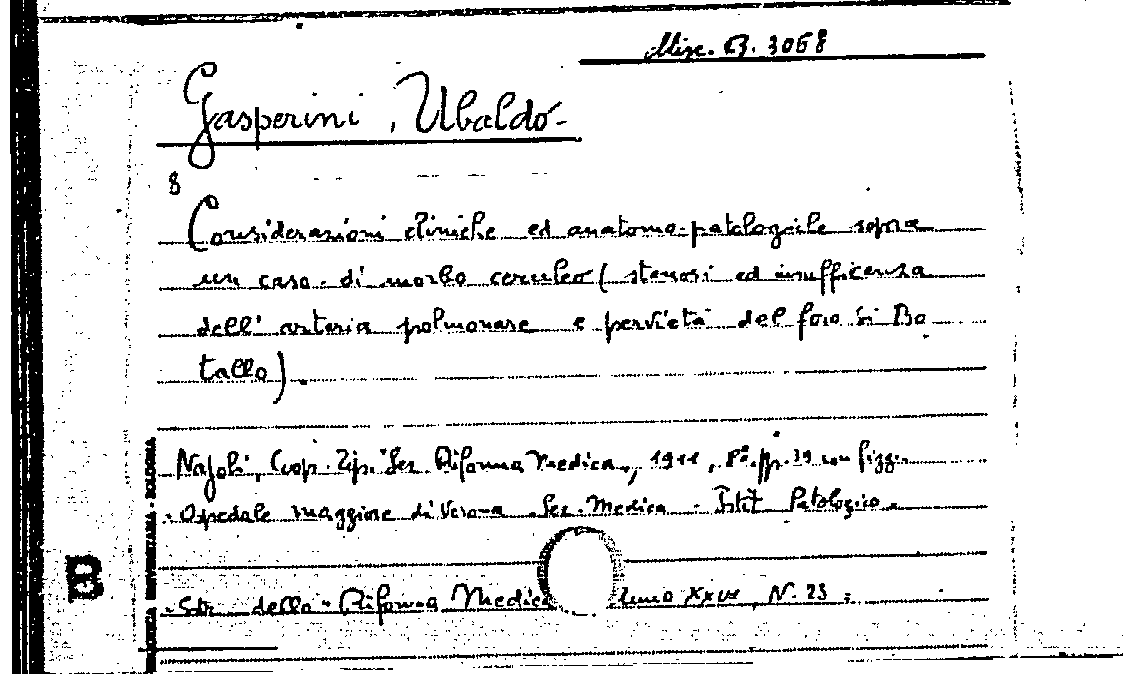 Misc. B. 3068
Gasperini, Ubaldo-
8
Considerazioni cliniche ed anatomo-patologiche sopra
un caso di morbo ceruleo (stenosi ed insufficenza
dell'arteria polmonare e pervietà del foro di Bo
tallo).
Napoli, Coop. Tip. Sez. Riforma Medica, 1911, 8°. pp. 39 con figg.
Ospedale maggiore di Verona. Sez. Medica - Istit Patologico.
Str. della "Riforma Medica N. 23
BIBLIOTECA UNIVERSITARIA - BOLOGNA
B